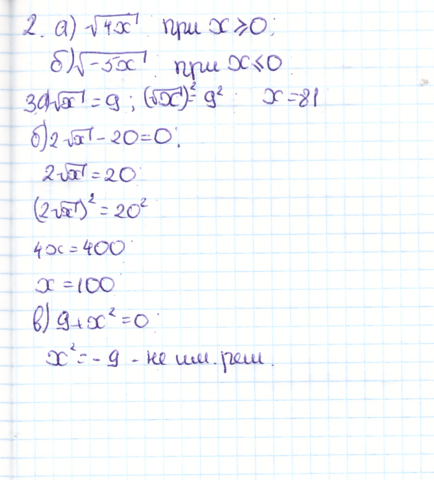 2. а) √4x при x ≥ 0;
б) √-5x при x ≤ 0
3 а) √x = 9; (√x)² = 9² x = 81
б) 2√x - 20 = 0;
2√x = 20
(2√x)² = 20²
4x = 400
x = 100
в) 9 + x² = 0
x² = - 9 - не им. реш.